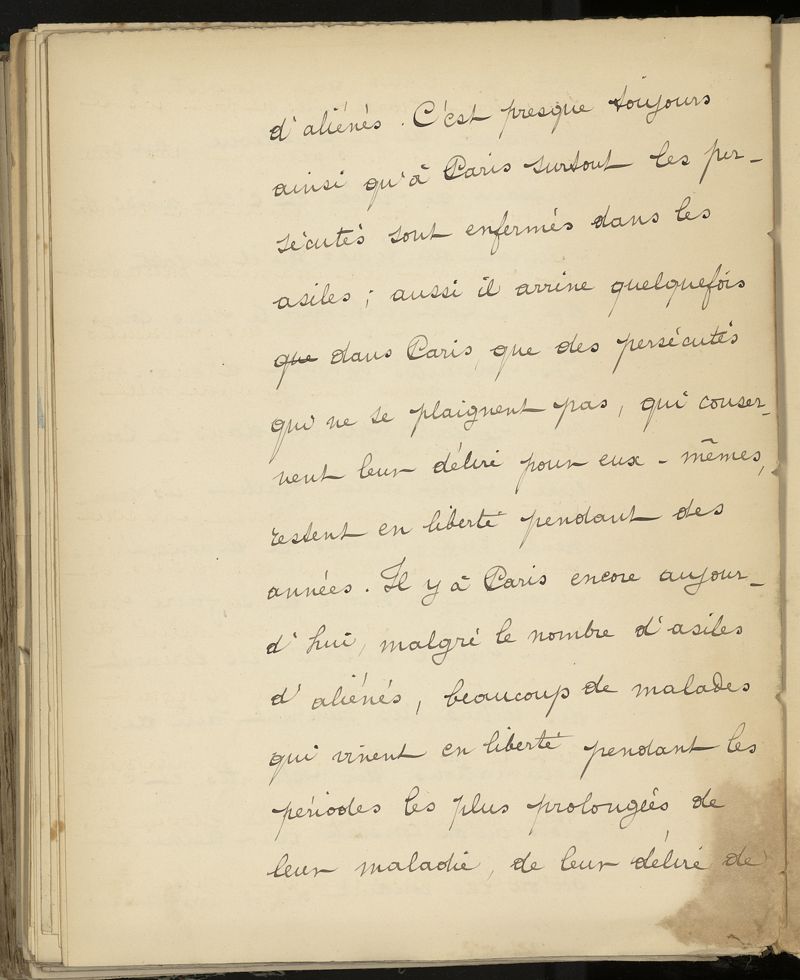 d'aliénés. C'est presque toujours
ainsi qu'à Paris surtout les per-
sécutés sont enfermés dans les
asiles ; aussi il arrive quelquefois
que dans Paris, que des persécutés
qui ne se plaignent pas, qui conser-
vent leur délire pour eux-mêmes,
restent en liberté pendant des
années. Il y a Paris encore aujour-
d'hui, malgré le nombre d'asiles
d'aliénés, beaucoup de malades
qui vivent en liberté pendant les
périodes les plus prolongées de
leur maladie, de leur délire de